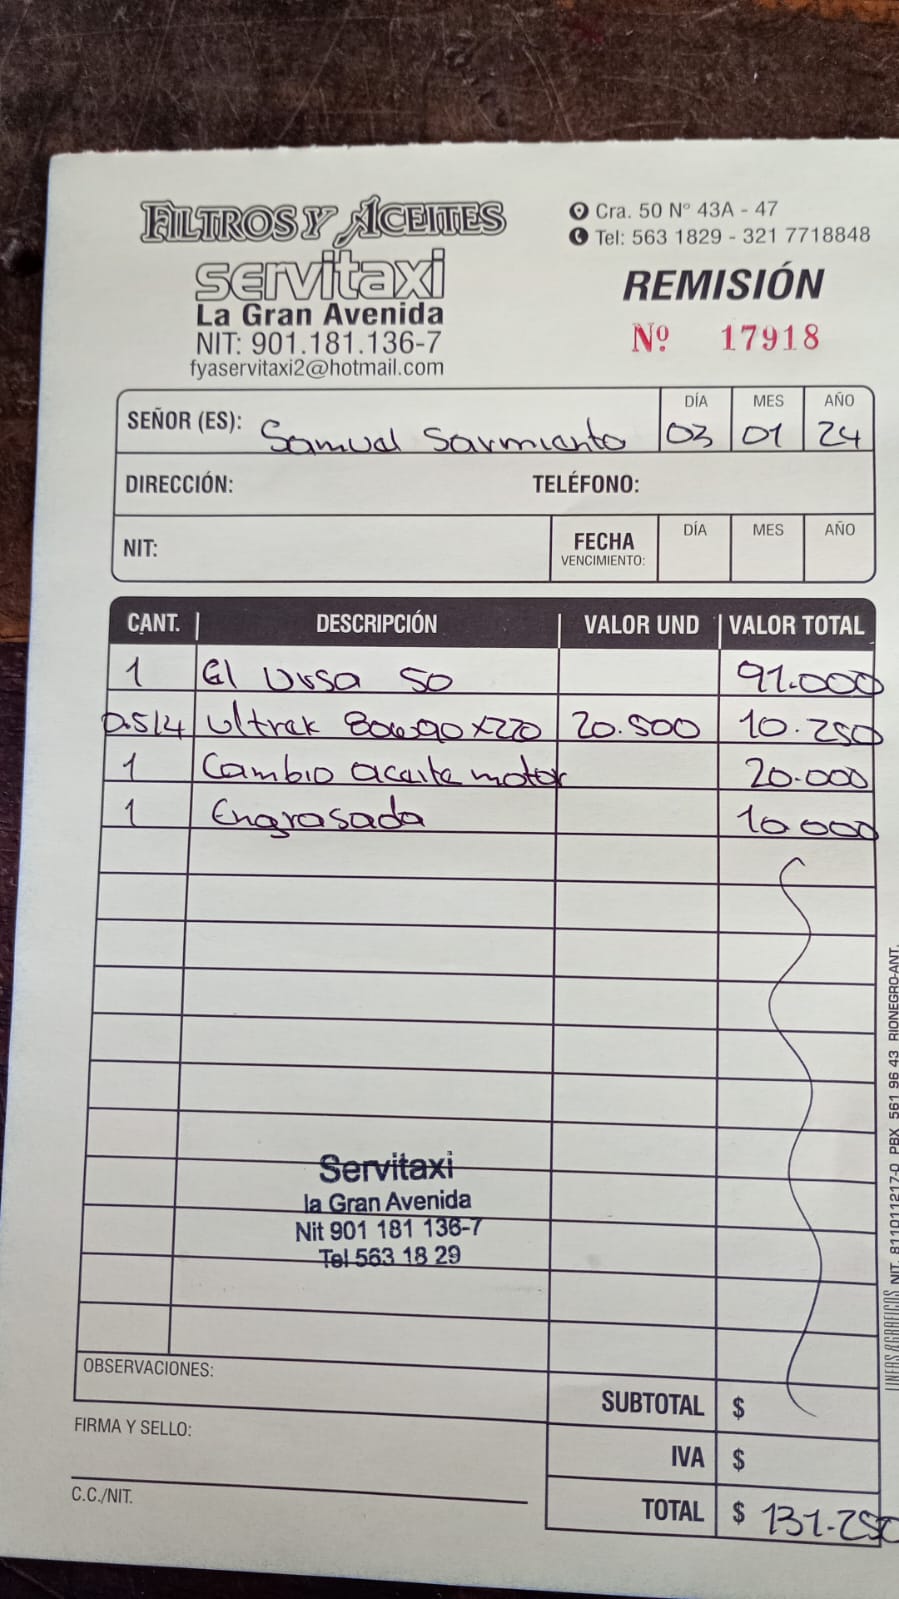 FILTROS Y ACEITES
servitaxi
La Gran Avenida
NIT: 901.181.136-7
fyaservitaxi2@hotmail.com
Cra. 50 N° 43A - 47
Tel: 563 1829 - 321 7718848
REMISIÓN
Nº 17918
SEÑOR (ES): Samuel Sarmiento
DÍA MES AÑO
03 01 24
DIRECCIÓN: TELÉFONO:
NIT: FECHA VENCIMIENTO: DÍA MES AÑO
CANT. DESCRIPCIÓN VALOR UND VALOR TOTAL
1 Gl Ursa 50 91.000
0.5/4 Ultrak 80w90x220 20.500 10.250
1 Cambio aceite motor 20.000
1 Engrasada 10.000
Servitaxi
la Gran Avenida
Nit 901 181 136-7
Tel 563 18 29
OBSERVACIONES:
SUBTOTAL $
FIRMA Y SELLO:
IVA $
C.C./NIT.
TOTAL $ 131.250
LINEAS AGRAFICOS NIT. 811011217-0 PBX 561 96 43 RIONEGRO-ANT.